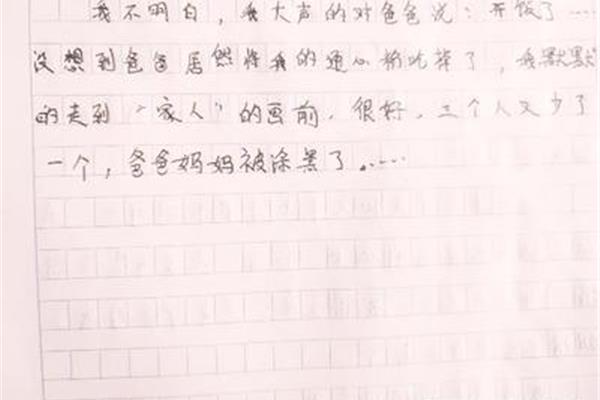 我不明白，我大声的对爸爸说：开饭了……
没想到爸爸居然将我的通心粉吃掉了，我默默
的走到“家人”的画前，很好，三个人又少了
一个，爸爸妈妈被涂黑了……